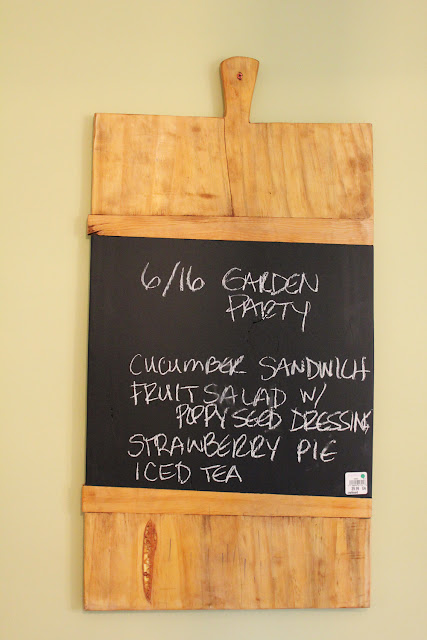 6/16 GARDEN
PARTY
CUCUMBER SANDWICH
FRUIT SALAD W/
POPPY SEED DRESSING
STRAWBERRY PIE
ICED TEA